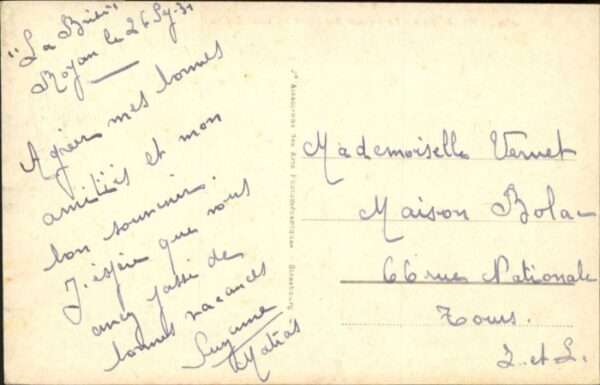 "La Brise"
Royan le 26 Sept. 31
Agréez mes bonnes
amitiés et mon
bon souvenir.
J'espère que vous
avez passé de
bonnes vacances
Suzanne
Matias
Mademoiselle Vernet
Maison Bolac
66 rue Nationale
Tours.
I. et L.